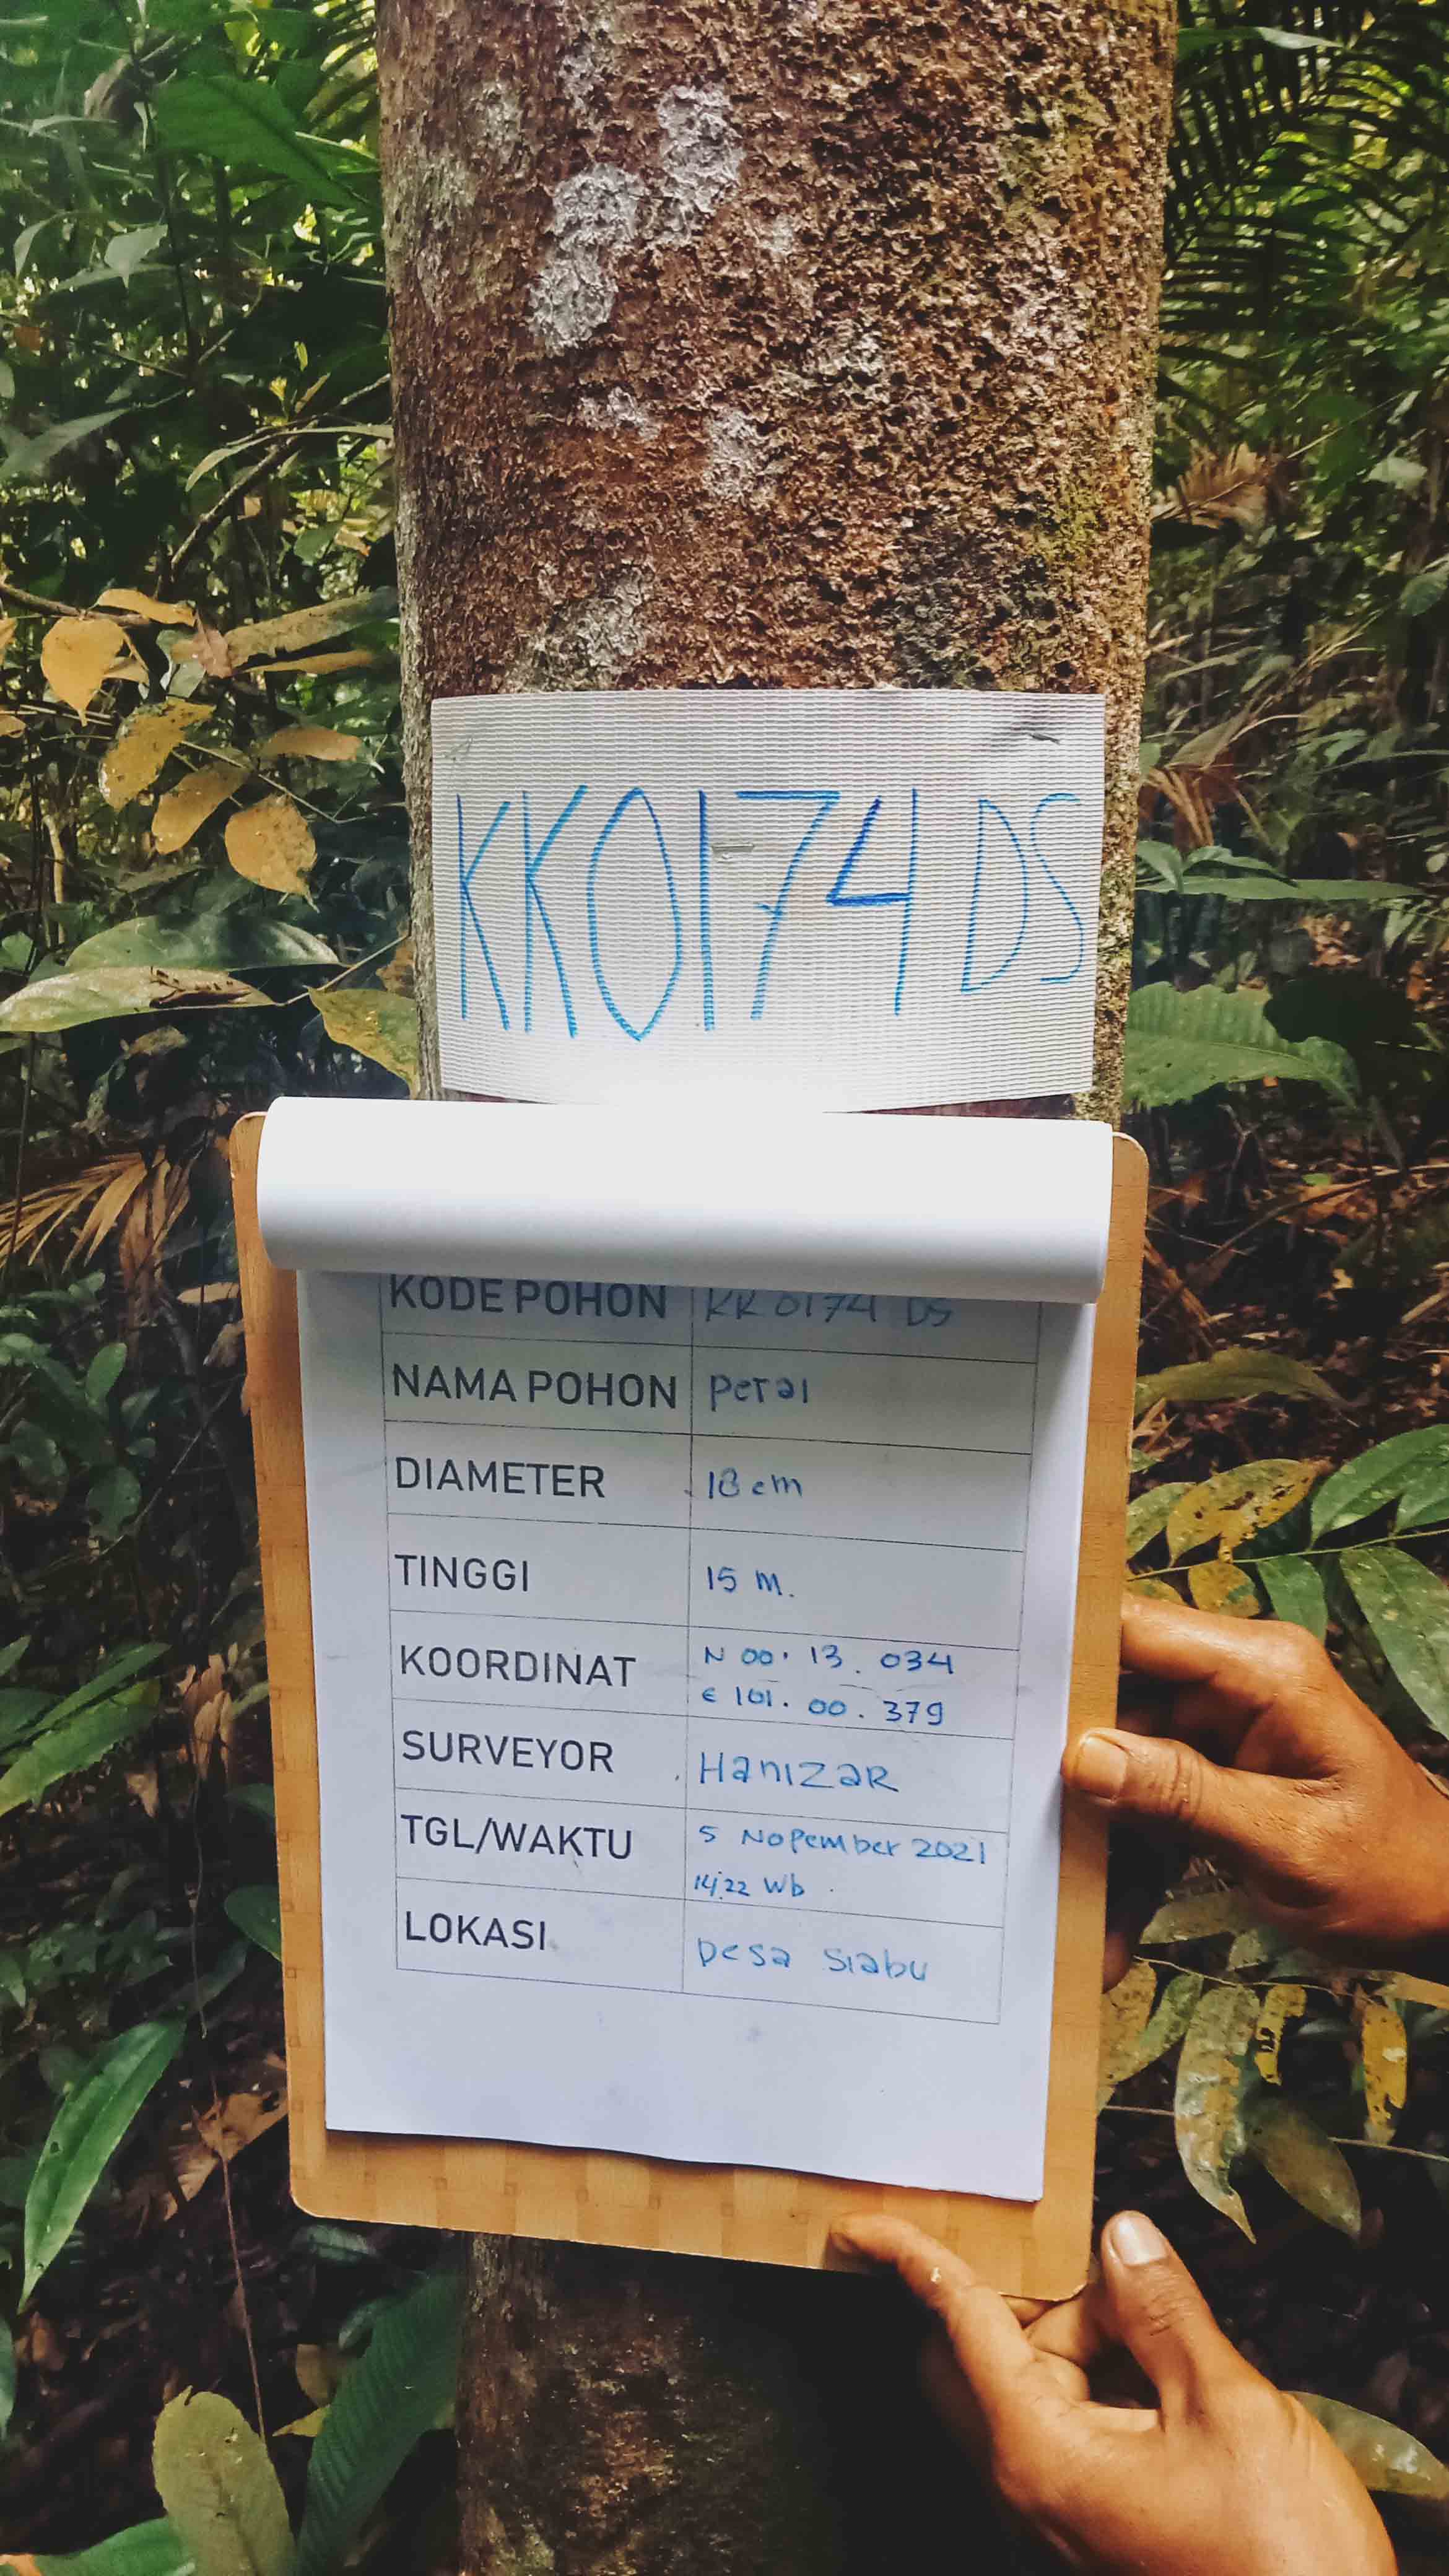 KK0174 DS
KODE POHON KK 0174 DS
NAMA POHON Petai
DIAMETER 18 cm
TINGGI 15 m.
KOORDINAT N 00. 13. 034
E 101. 00. 379
SURVEYOR HanizaR
TGL/WAKTU 5 Nopember 2021
14:22 Wb
LOKASI Desa Siabu